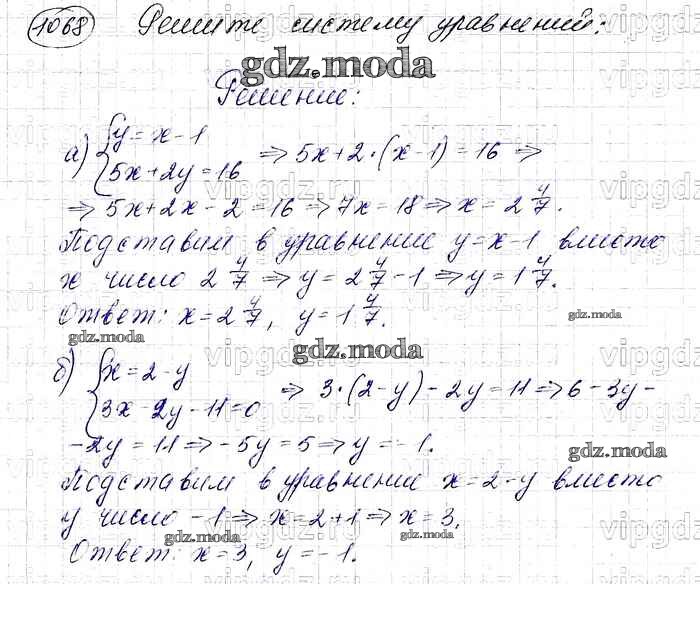 1068 Решите систему уравнений:
gdz.moda
Решение:
а) { y = x - 1
5x + 2y = 16 ⇒ 5x + 2·(x - 1) = 16 ⇒
⇒ 5x + 2x - 2 = 16 ⇒ 7x = 18 ⇒ x = 2 4/7.
Подставим в уравнение y = x - 1 вместо
x число 2 4/7 ⇒ y = 2 4/7 - 1 ⇒ y = 1 4/7.
Ответ: x = 2 4/7, y = 1 4/7.
gdz.moda
gdz.moda
gdz.moda
б) { x = 2 - y
3x - 2y - 11 = 0 ⇒ 3·(2 - y) - 2y = 11 ⇒ 6 - 3y -
- 2y = 11 ⇒ - 5y = 5 ⇒ y = - 1.
gdz.moda
Подставим в уравнение x = 2 - y вместо
y число - 1 ⇒ x = 2 + 1 ⇒ x = 3,
gdz.moda
gdz.moda
Ответ: x = 3, y = - 1.